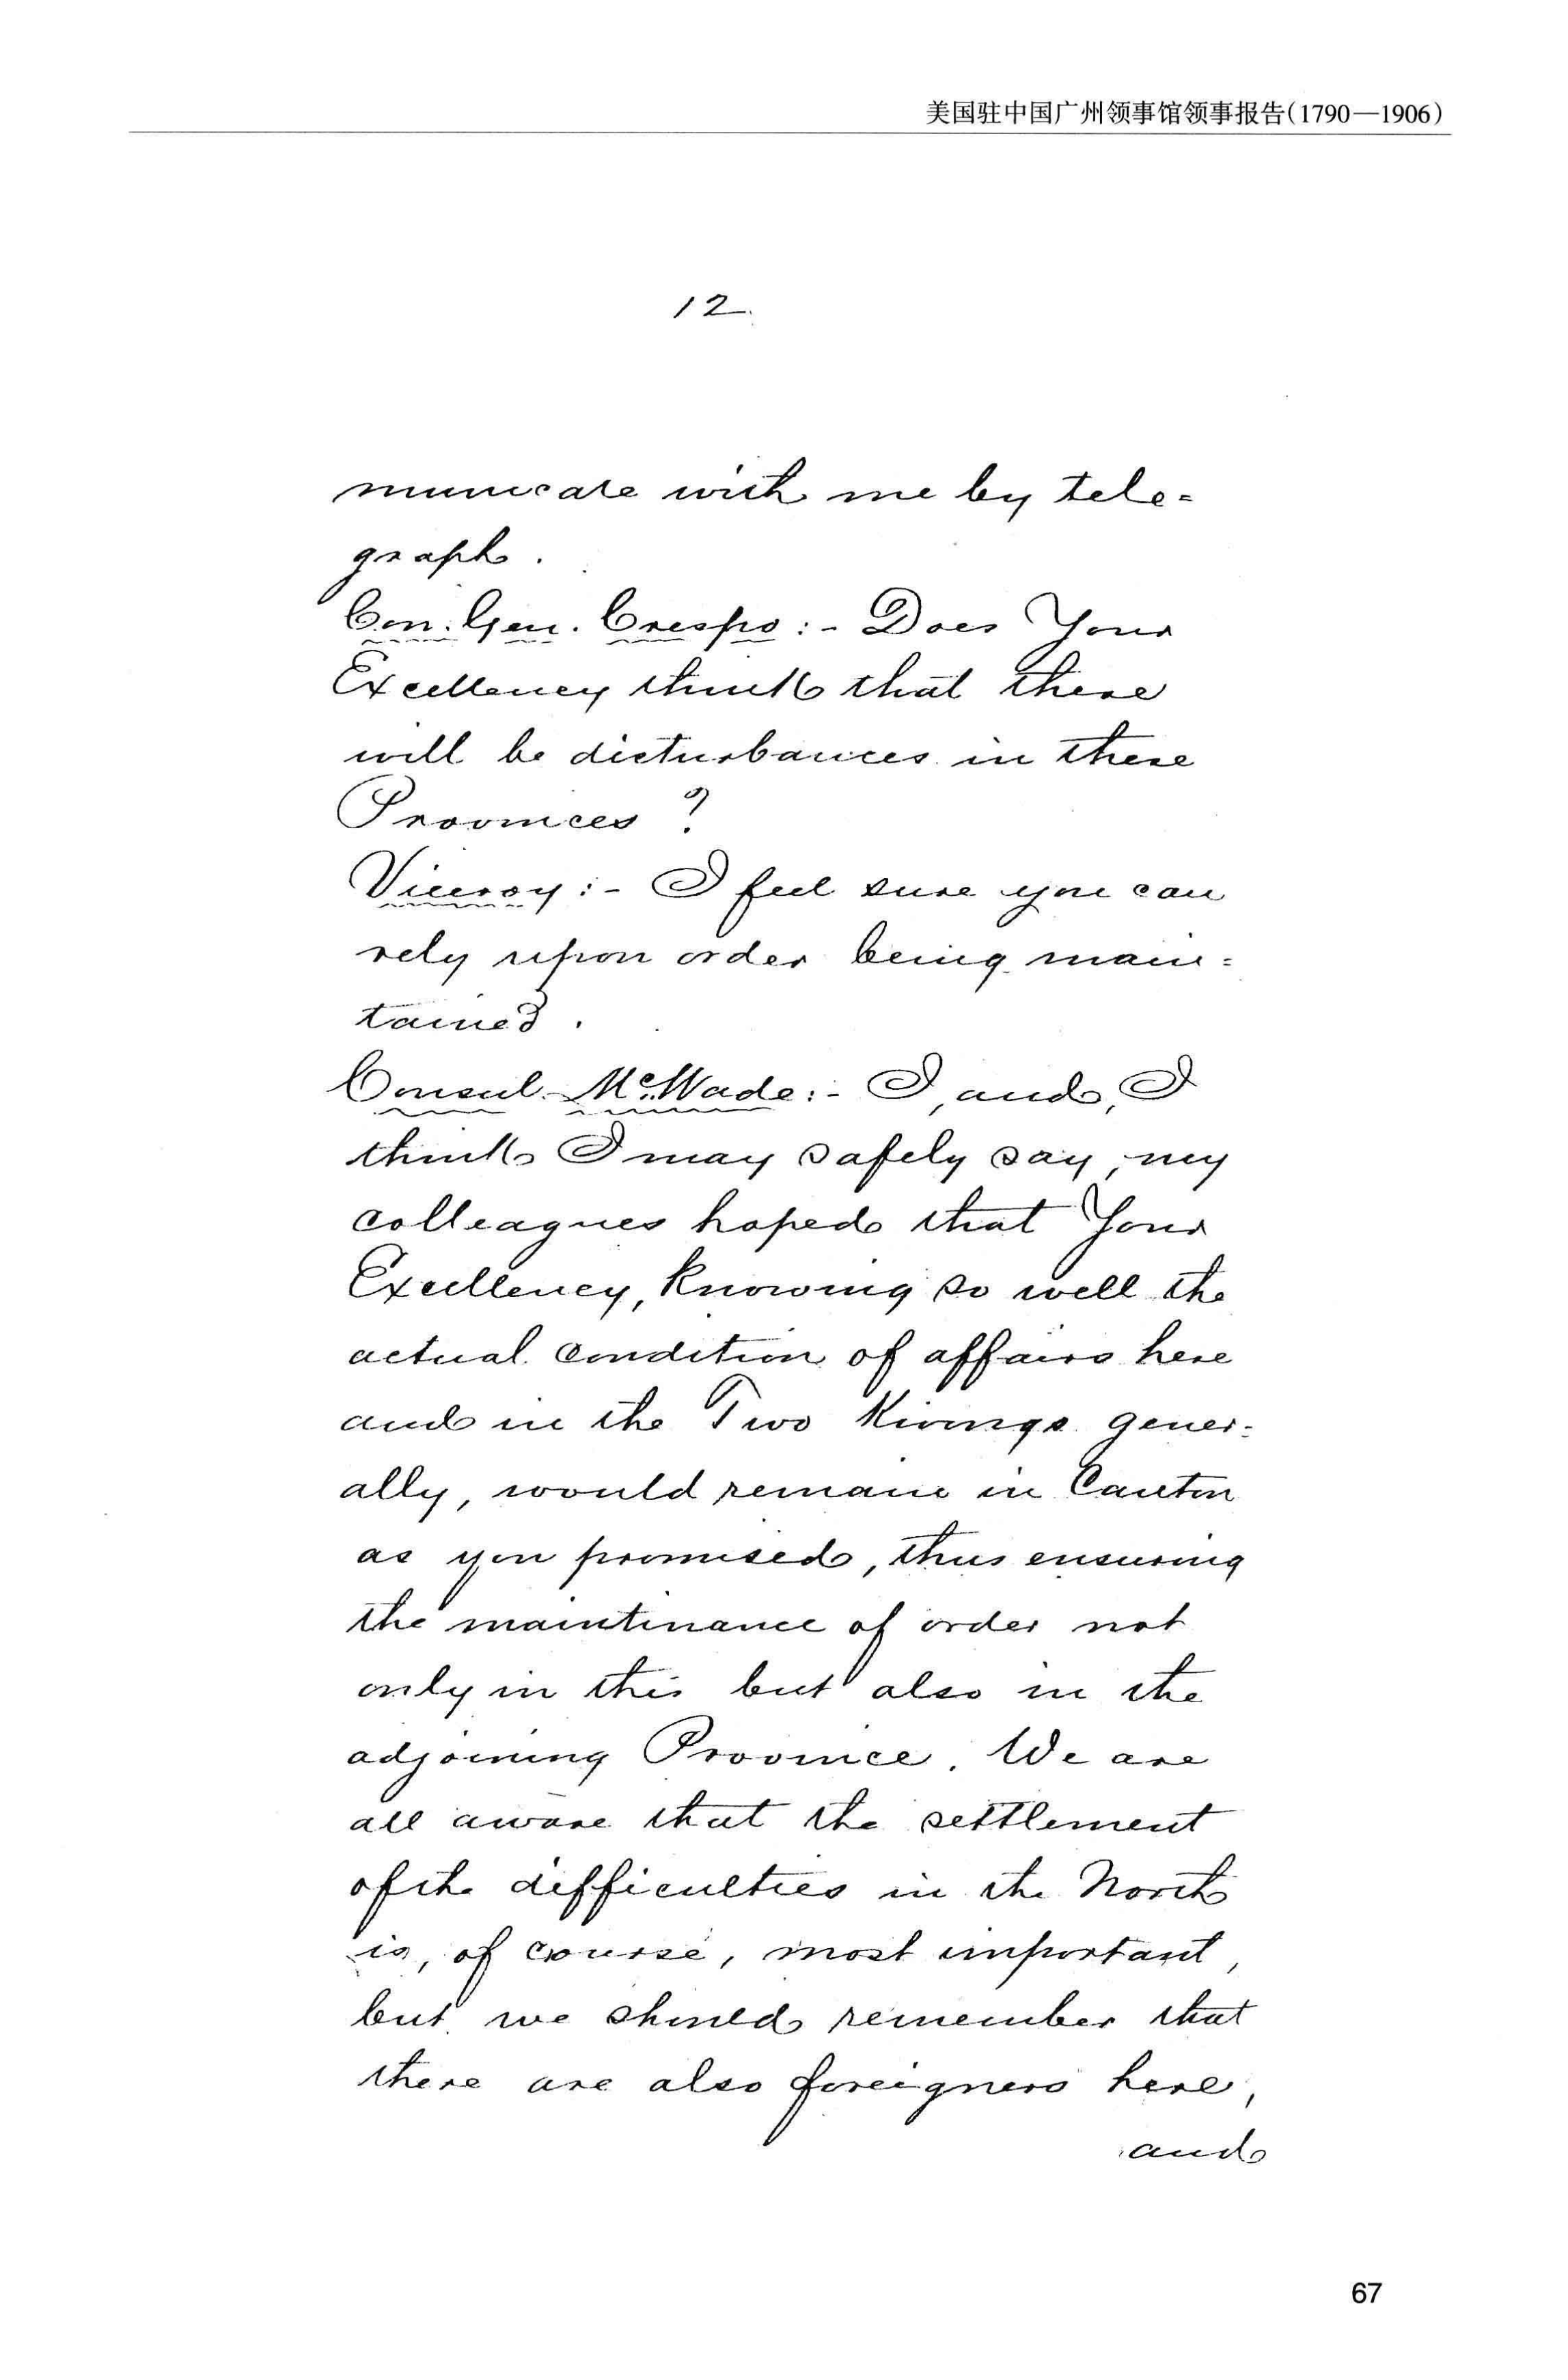 美国驻中国广州领事馆领事报告(1790—1906)
12.
municate with me by tele=
graph.
Con. Gen. Crespo:- Does Your
Excellency think that there
will be disturbances in these
Provinces ?
Viceroy:- I feel sure you can
rely upon order being main=
tained.
Consul McWade:- I, and, I
think I may safely say, my
colleagues hoped that Your
Excellency, knowing so well the
actual condition of affairs here
and in the Two Kwangs gener-
ally, would remain in Canton
as you promised, thus ensuring
the maintinance of order not
only in this but also in the
adjoining Province. We are
all aware that the settlement
of the difficulties in the North
is, of course, most important,
but we should remember that
there are also foreigners here,
and
67